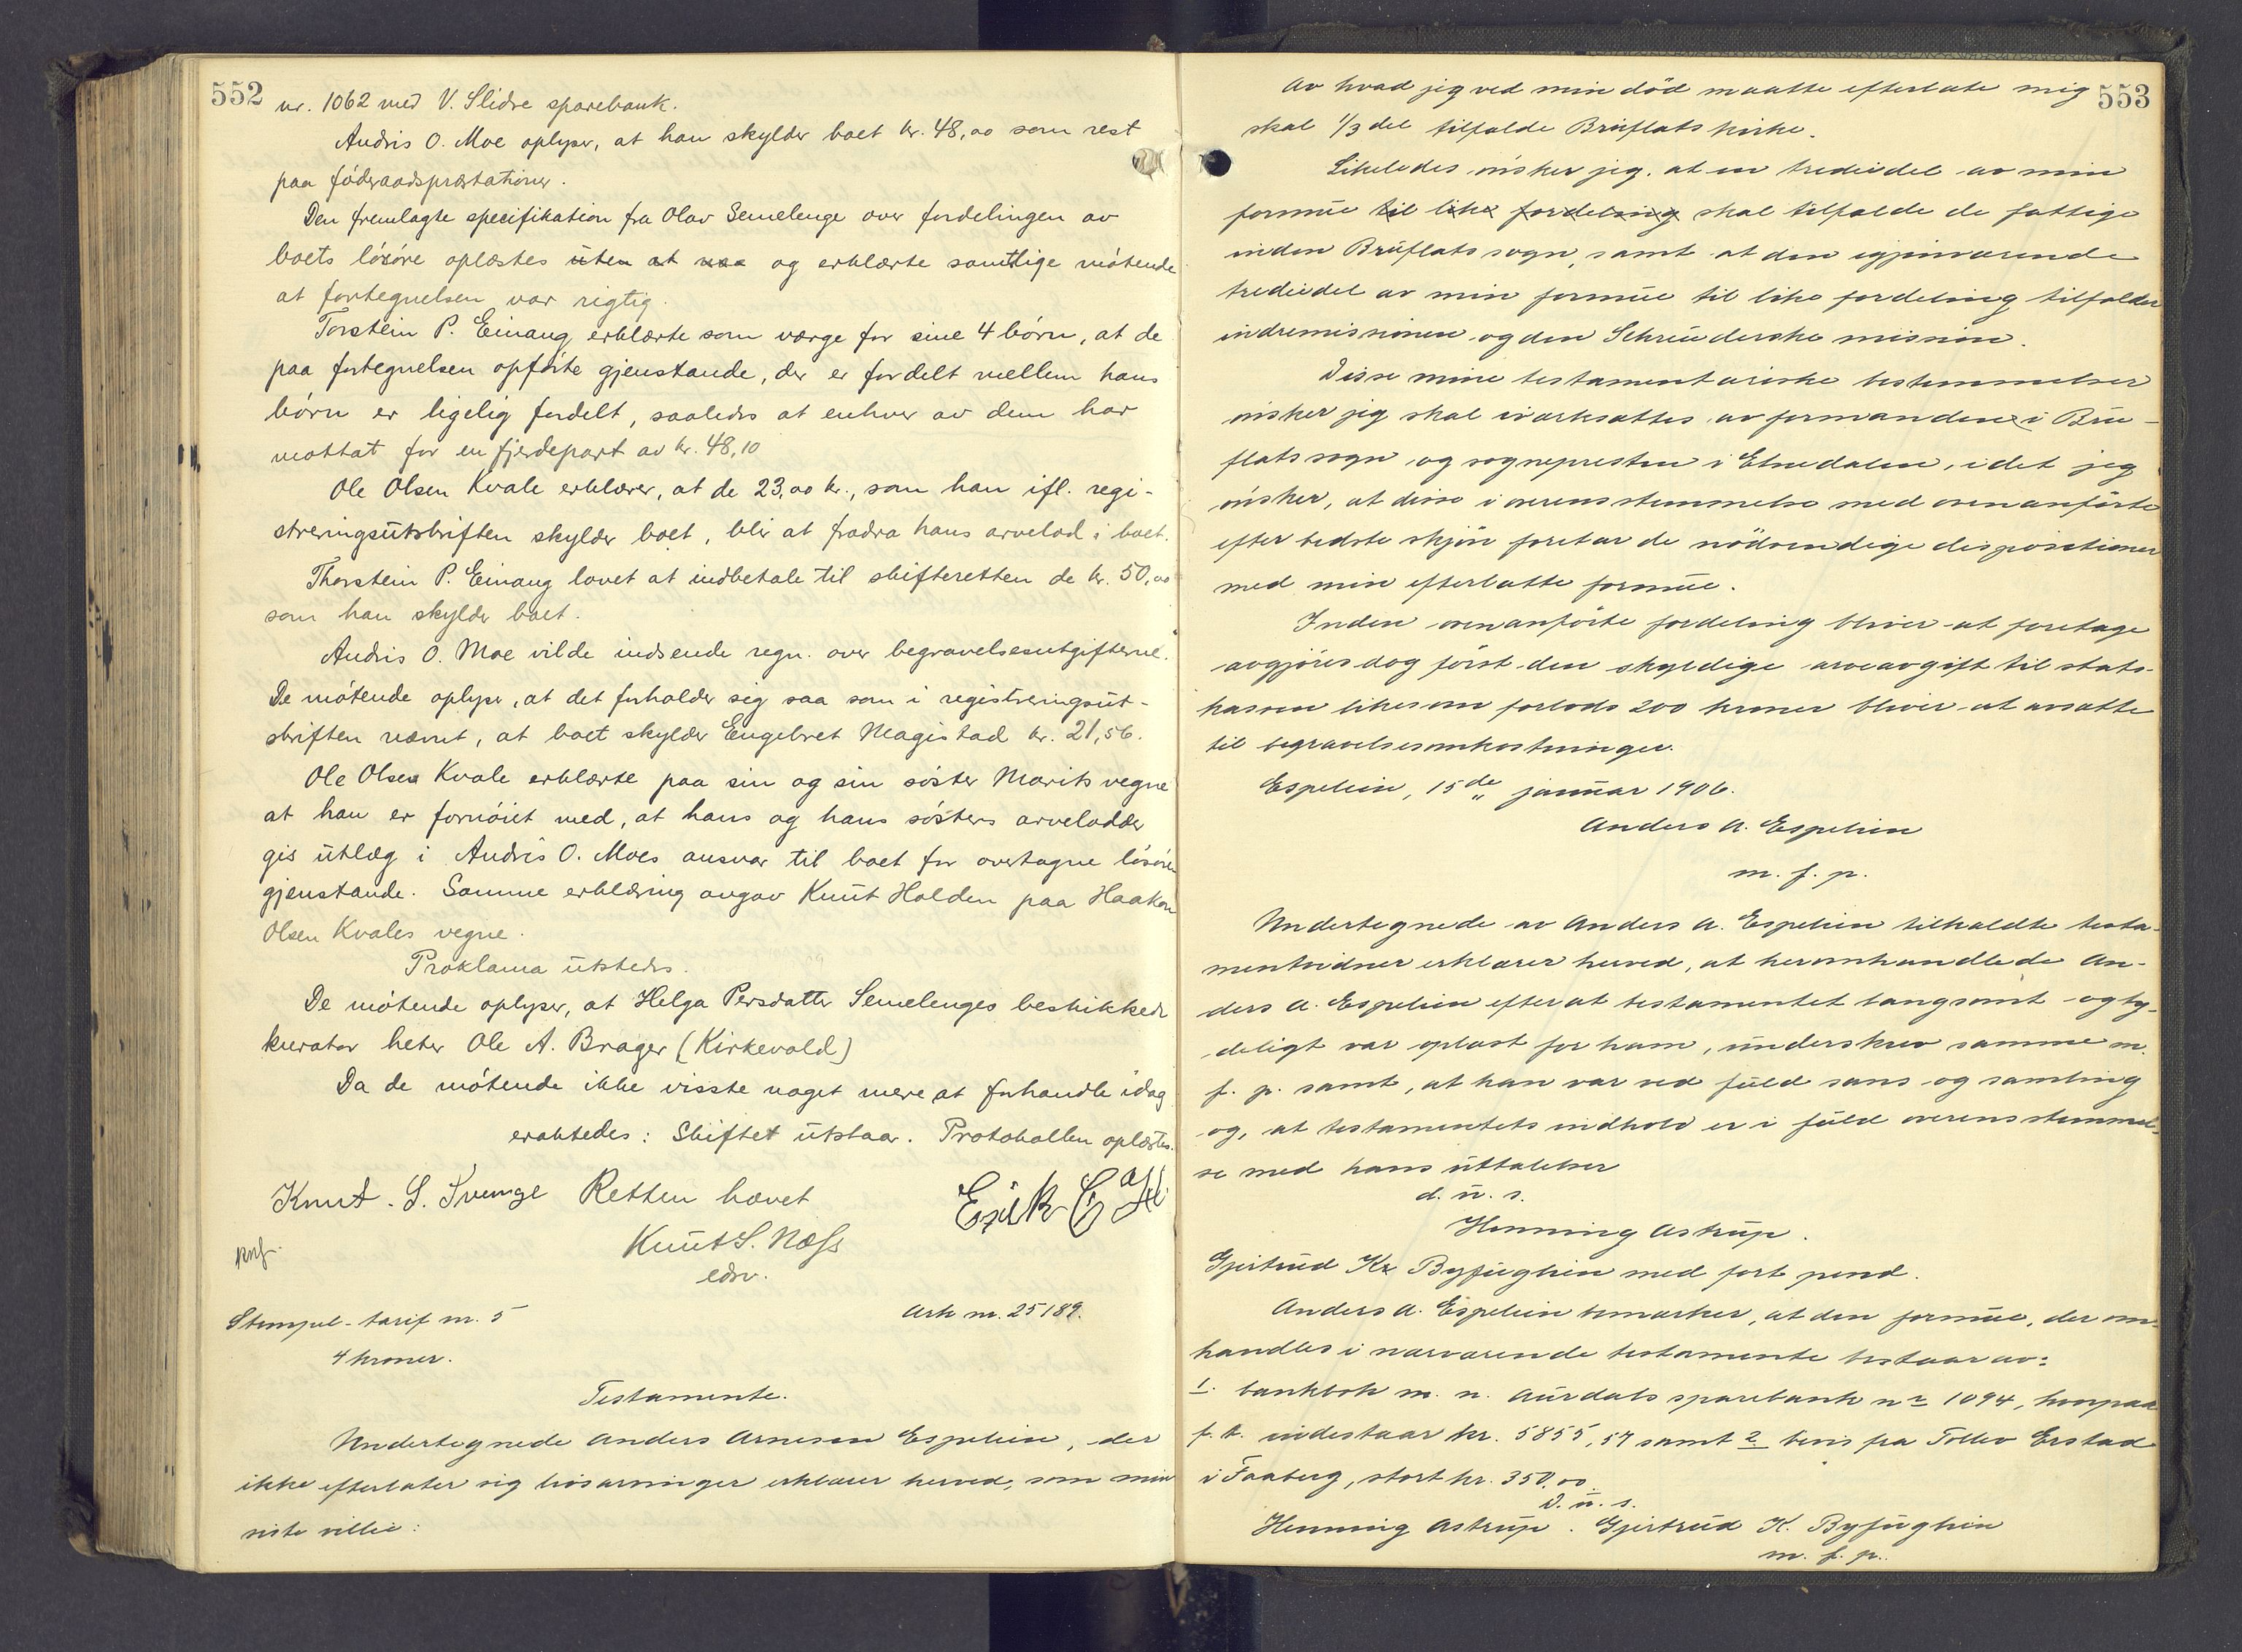 552
nr. 1062 med V. Slidre sparebank.
Andris O. Moe oplyser, at han skylder boet kr. 48,00 som rest
paa föderaadspræstationer.
Den fremlagte specifikation fra Olav Semelenge over fordelingen av
boets lösöre oplæstes uten at og erklærte samtlige mötende
at fortegnelsen var rigtig.
Torstein P. Einang erklærte som værge for sine 4 börn, at de
paa fortegnelsen opförte gjenstande, der er fordelt mellem hans
börn er ligelig fordelt, saaledes at enhver av dem har
mottat for en fjerdepart av kr. 48,10
Ole Olsen Kvale erklærer, at de 23,00 kr., som han ifl. regi-
streringsutskriften skylder boet, blir at fradra hans arvelod i boet.
Thorstein P. Einang lovet at indbetale til skifteretten de kr. 50,00
som han skylder boet.
Andris O. Moe vilde indsende regn. over begravelsesutgifterne.
De mötende oplyser, at det forholder sig saa som i registreringsut-
skriften nævnt, at boet skylder Engebret Magistad kr. 21,56.
Ole Olsen Kvale erklærte paa sin og sin söster Marits vegne
at han er fornöiet med, at hans og hans sösters arvelodder
gis utlæg i Andris O. Moes ansvar til boet for overtagne lösöre
gjenstande. Samme erklæring avgav Knut Holden paa Haakon
Olsen Kvales vegne.
Proklama utstedes.
De mötende oplyser, at Helga Persdatter Semelenges beskikkede
kurator heter Ole A. Brager (Kirkevold)
Da de mötende ikke visste noget mere at forhandle idag
eraktedes: Skiftet utstaar. Protokollen oplæstes.
Knut. S. Svenge Retten hævet
Knut S. Næss
edsv.
Stempel-tarif nr. 5
Ark nr. 25189.
4 kroner.
Testamente.
Undertegnede Anders Arnesen Espelien, der
ikke efterlater sig livsarvinger erklærer herved, som min
siste villie:
553
Av hvad jeg ved min död maatte efterlate mig
skal 1/3 del tilfalde Bruflats kirke.
Likeledes önsker jeg, at en trediedel av min
formue til like fordeling skal tilfalde de fattige
inden Bruflats sogn, samt at den igjenværende
trediedel av min formue til like fordeling tilfalder
indremissionen og den Schreuderske mission.
Disse mine testamentariske bestemmelser
önsker jeg skal iværksættes av formanden i Bru-
flats sogn og sognepresten i Etnedalen, idet jeg
önsker, at disse i overensstemmelse med ovenanförte
efter bedste skjön foretar de nödvendige dispositioner
med min efterlatte formue.
Inden ovenanförte fordeling bliver at foretage
avgjöres dog först den skyldige arveavgift til stats-
kassen likesom forlods 200 kroner bliver at avsætte
til begravelsesomkostninger.
Espelien, 15de januar 1906.
Anders A. Espelien
m. f. p.
Undertegnede av Anders A. Espelien tilkaldte testa-
mentvidner erklærer herved, at heromhandlede An-
ders A. Espelien efter at testamentet langsomt og ty-
deligt var oplæst for ham, underskrev samme m.
f. p. samt, at han var ved fuld sans og samling
og, at testamentets indhold er i fuld overensstemmel-
se med hans uttalelser
d. u. s.
Henning Astrup.
Gjertrud K Byfuglien med fört pend.
Anders A. Espelien bemærker, at den formue, der om-
handles i nærværende testamente bestaar av:
1. bankbok m. n. Aurdals sparebank nr 1094, hvorpaa
f. t. indestaar kr. 5855,54 samt 2. bevis fra Tollev Erstad
i Faaberg, stort kr. 350,00.
D. u. s.
Henning Astrup. Gjertrud K. Byfuglien
m. f. p.